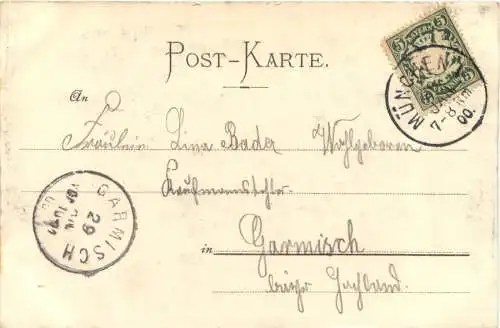 POST-KARTE.
An
Fräulein Lina Bader Wohlgeboren
Kaufmannstochter
in Garmisch
bayr. Hochland.
BAYERN
5 5
MÜNCHEN
7-8 Nm
00.
GARMISCH
29